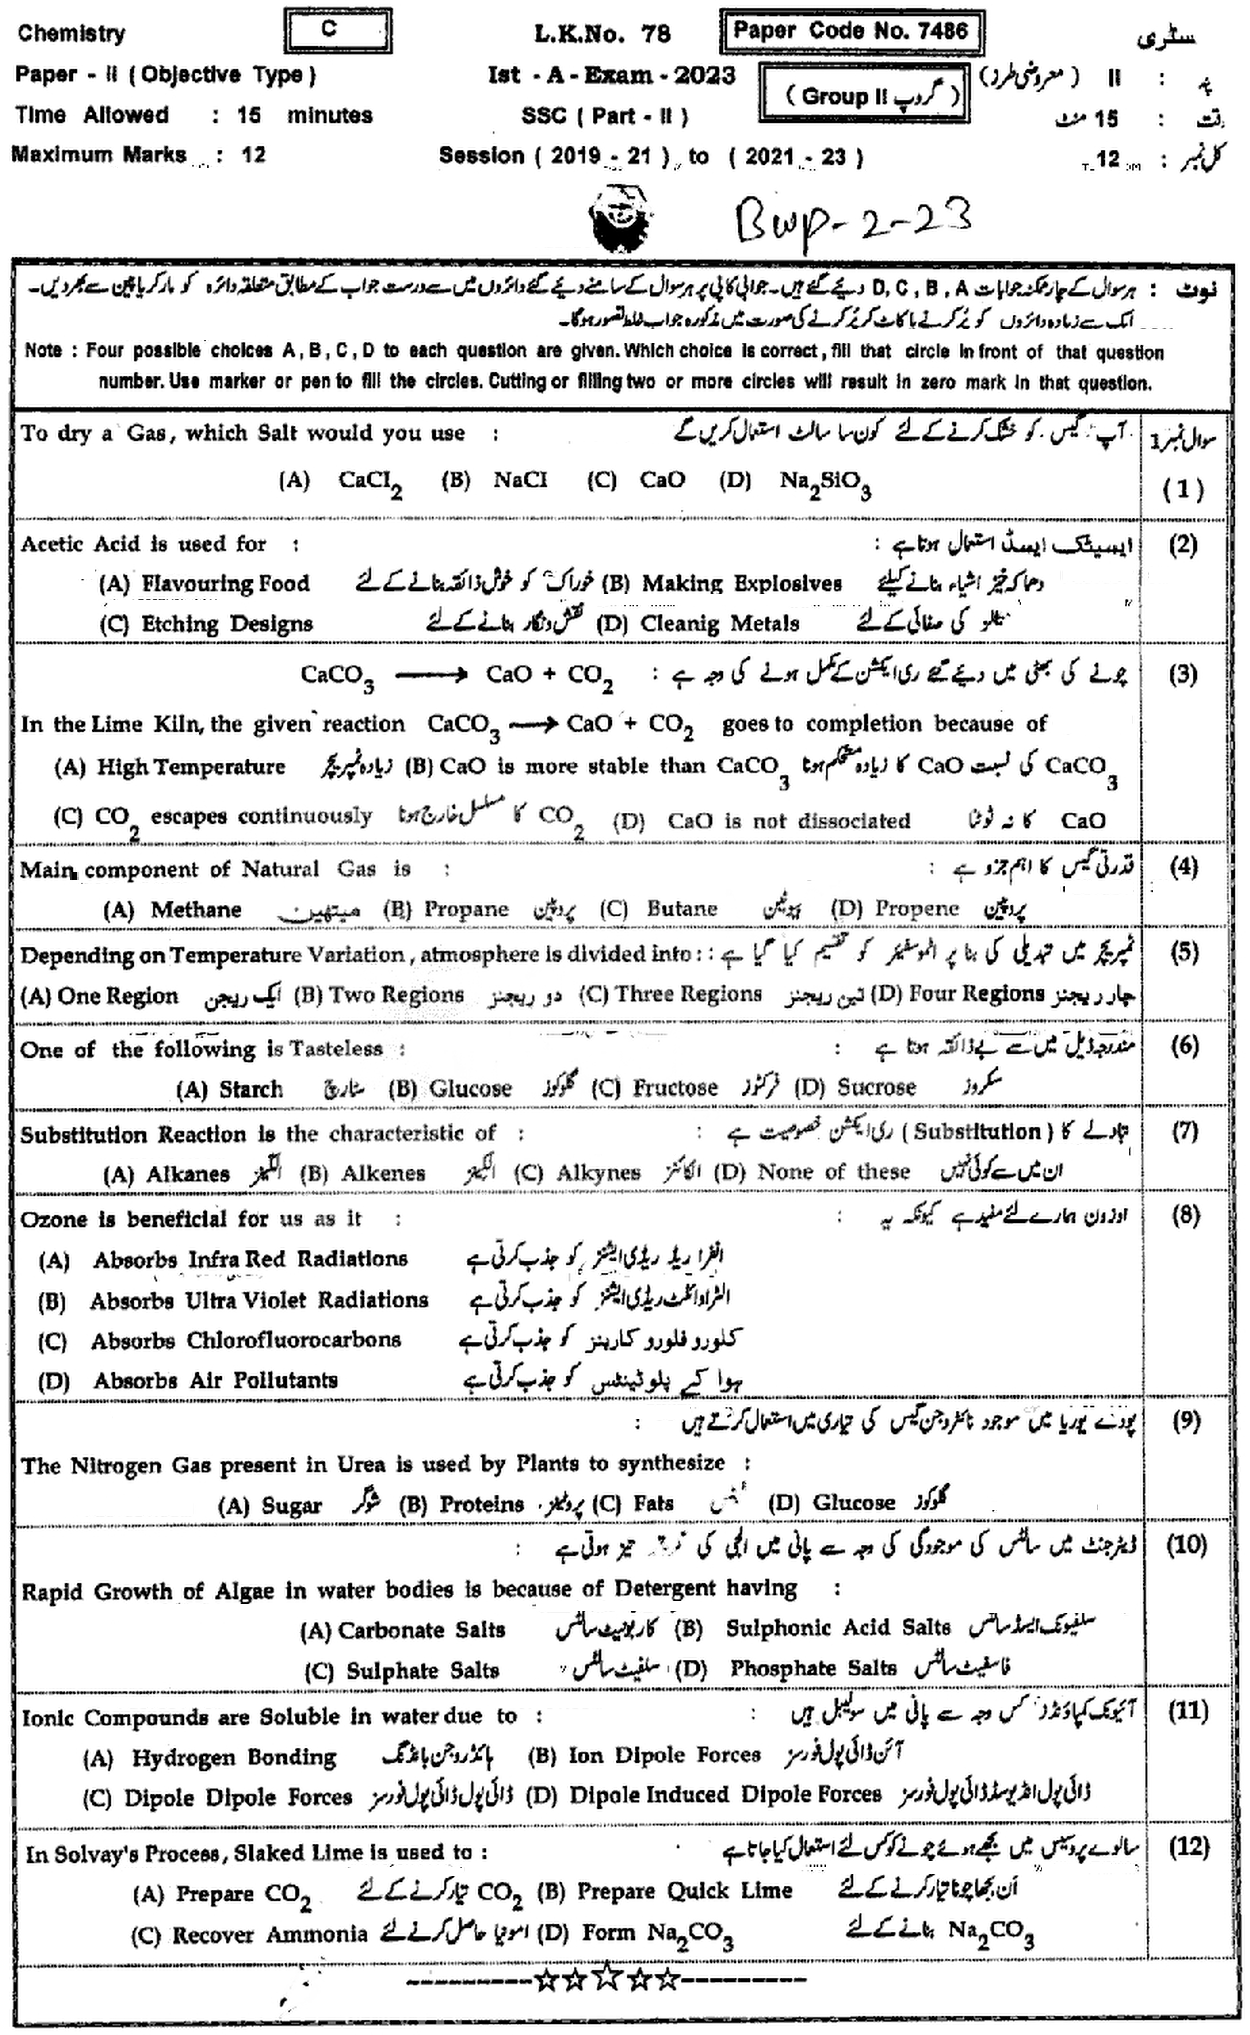 Chemistry C L.K.No. 78 Paper Code No. 7486
Paper - II ( Objective Type ) Ist - A - Exam - 2023 II : ( معروضی طرز )
Time Allowed : 15 minutes SSC ( Part - II ) ( Group II گروپ ) 15 منٹ :
Maximum Marks : 12 Session ( 2019 - 21 ) to ( 2021 - 23 ) 12 : کل نمبر
Bwp-2-23
نوٹ : ہر سوال کے چار ممکنہ جوابات D, C, B, A دیئے گئے ہیں۔ جوابی کاپی پر ہر سوال کے سامنے دیئے گئے دائروں میں سے درست جواب کے مطابق متعلقہ دائرہ کو مارکر یا پین سے بھر دیں۔
ایک سے زیادہ دائروں کو پُر کرنے یا کاٹ کر پُر کرنے کی صورت میں مذکورہ جواب غلط تصور ہوگا۔
Note : Four possible choices A, B, C, D to each question are given. Which choice is correct, fill that circle in front of that question
number. Use marker or pen to fill the circles. Cutting or filling two or more circles will result in zero mark in that question.
سوال نمبر 1
To dry a Gas, which Salt would you use : آپ گیس کو خشک کرنے کے لئے کون سا سالٹ استعمال کریں گے
(A) CaCl2 (B) NaCl (C) CaO (D) Na2SiO3 (1)
Acetic Acid is used for : ایسیٹک ایسڈ استعمال ہوتا ہے : (2)
(A) Flavouring Food خوراک کو خوش ذائقہ بنانے کے لئے (B) Making Explosives دھماکہ خیز اشیاء بنانے کیلئے
(C) Etching Designs نقش و نگار بنانے کے لئے (D) Cleanig Metals کی صفائی کے لئے
CaCO3 ⟶ CaO + CO2 : چونے کی بھٹی میں دیئے گئے ری ایکشن کے مکمل ہونے کی وجہ ہے (3)
In the Lime Kiln, the given reaction CaCO3 ⟶ CaO + CO2 goes to completion because of
(A) High Temperature زیادہ ٹمپریچر (B) CaO is more stable than CaCO3 CaCO3 کی نسبت CaO کا زیادہ مستحکم ہونا
(C) CO2 escapes continuously CO2 کا مسلسل خارج ہونا (D) CaO is not dissociated CaO کا نہ ٹوٹنا
Main component of Natural Gas is : قدرتی گیس کا اہم جزو ہے : (4)
(A) Methane میتھین (B) Propane پروپین (C) Butane بیوٹین (D) Propene پروپین
Depending on Temperature Variation, atmosphere is divided into : : ٹمپریچر میں تبدیلی کی بنا پر اٹموسفیئر کو تقسیم کیا گیا ہے (5)
(A) One Region ایک ریجن (B) Two Regions دو ریجنز (C) Three Regions تین ریجنز (D) Four Regions چار ریجنز
One of the following is Tasteless : مندرجہ ذیل میں سے بے ذائقہ ہوتا ہے : (6)
(A) Starch سٹارچ (B) Glucose گلوکوز (C) Fructose فرکٹوز (D) Sucrose سکروز
Substitution Reaction is the characteristic of : تبادلے کا ( Substitution ) ری ایکشن خصوصیت ہے : (7)
(A) Alkanes الکینز (B) Alkenes الکینز (C) Alkynes الکائنز (D) None of these ان میں سے کوئی نہیں
Ozone is beneficial for us as it : اوزون ہمارے لئے مفید ہے کیونکہ یہ : (8)
(A) Absorbs Infra Red Radiations انفرا ریڈ ریڈی ایشنز کو جذب کرتی ہے
(B) Absorbs Ultra Violet Radiations الٹرا وائلٹ ریڈی ایشنز کو جذب کرتی ہے
(C) Absorbs Chlorofluorocarbons کلورو فلورو کاربنز کو جذب کرتی ہے
(D) Absorbs Air Pollutants ہوا کے پلوٹینٹس کو جذب کرتی ہے
پودے یوریا میں موجود نائٹروجن گیس کی تیاری میں استعمال کرتے ہیں : (9)
The Nitrogen Gas present in Urea is used by Plants to synthesize :
(A) Sugar شوگر (B) Proteins پروٹینز (C) Fats (D) Glucose گلوکوز
ڈیٹرجنٹ میں سالٹس کی موجودگی کی وجہ سے پانی میں الجی کی تیز ہوتی ہے : (10)
Rapid Growth of Algae in water bodies is because of Detergent having :
(A) Carbonate Salts کاربونیٹ سالٹس (B) Sulphonic Acid Salts سلفونک ایسڈ سالٹس
(C) Sulphate Salts سلفیٹ سالٹس (D) Phosphate Salts فاسفیٹ سالٹس
Ionic Compounds are Soluble in water due to : آئیونک کمپاؤنڈز کس وجہ سے پانی میں سولیبل ہیں : (11)
(A) Hydrogen Bonding ہائڈروجن بانڈنگ (B) Ion Dipole Forces آئن ڈائی پول فورسز
(C) Dipole Dipole Forces ڈائی پول ڈائی پول فورسز (D) Dipole Induced Dipole Forces ڈائی پول انڈیوسڈ ڈائی پول فورسز
In Solvay's Process, Slaked Lime is used to : سالوے پروسیس میں بجھے ہوئے چونے کو کس لئے استعمال کیا جاتا ہے (12)
(A) Prepare CO2 CO2 تیار کرنے کے لئے (B) Prepare Quick Lime اَن بجھا چونا تیار کرنے کے لئے
(C) Recover Ammonia امونیا حاصل کرنے لئے (D) Form Na2CO3 Na2CO3 بنانے کے لئے